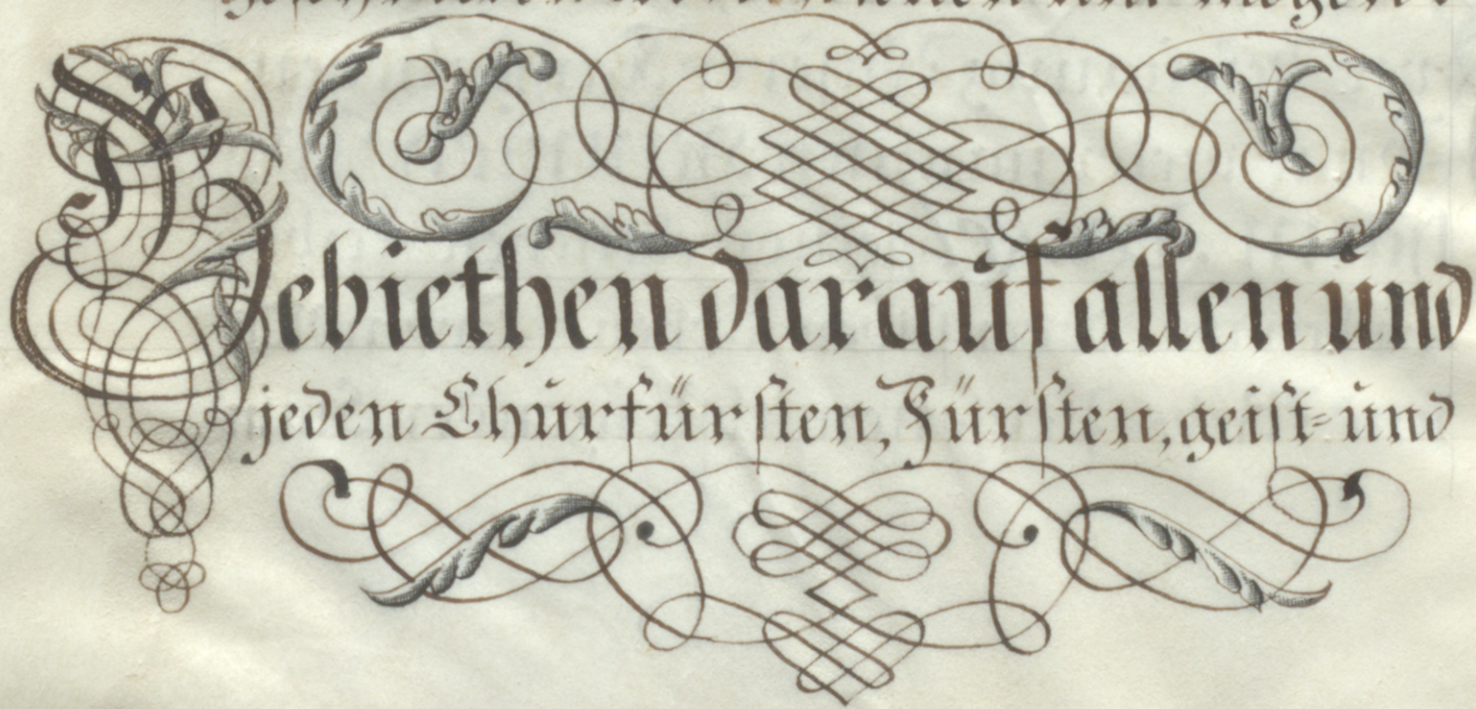 Gebiethen darauf allen und
jeden Churfürsten, Fürsten, geist= und